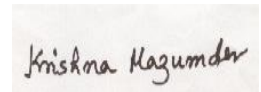 Krishna Mazumder